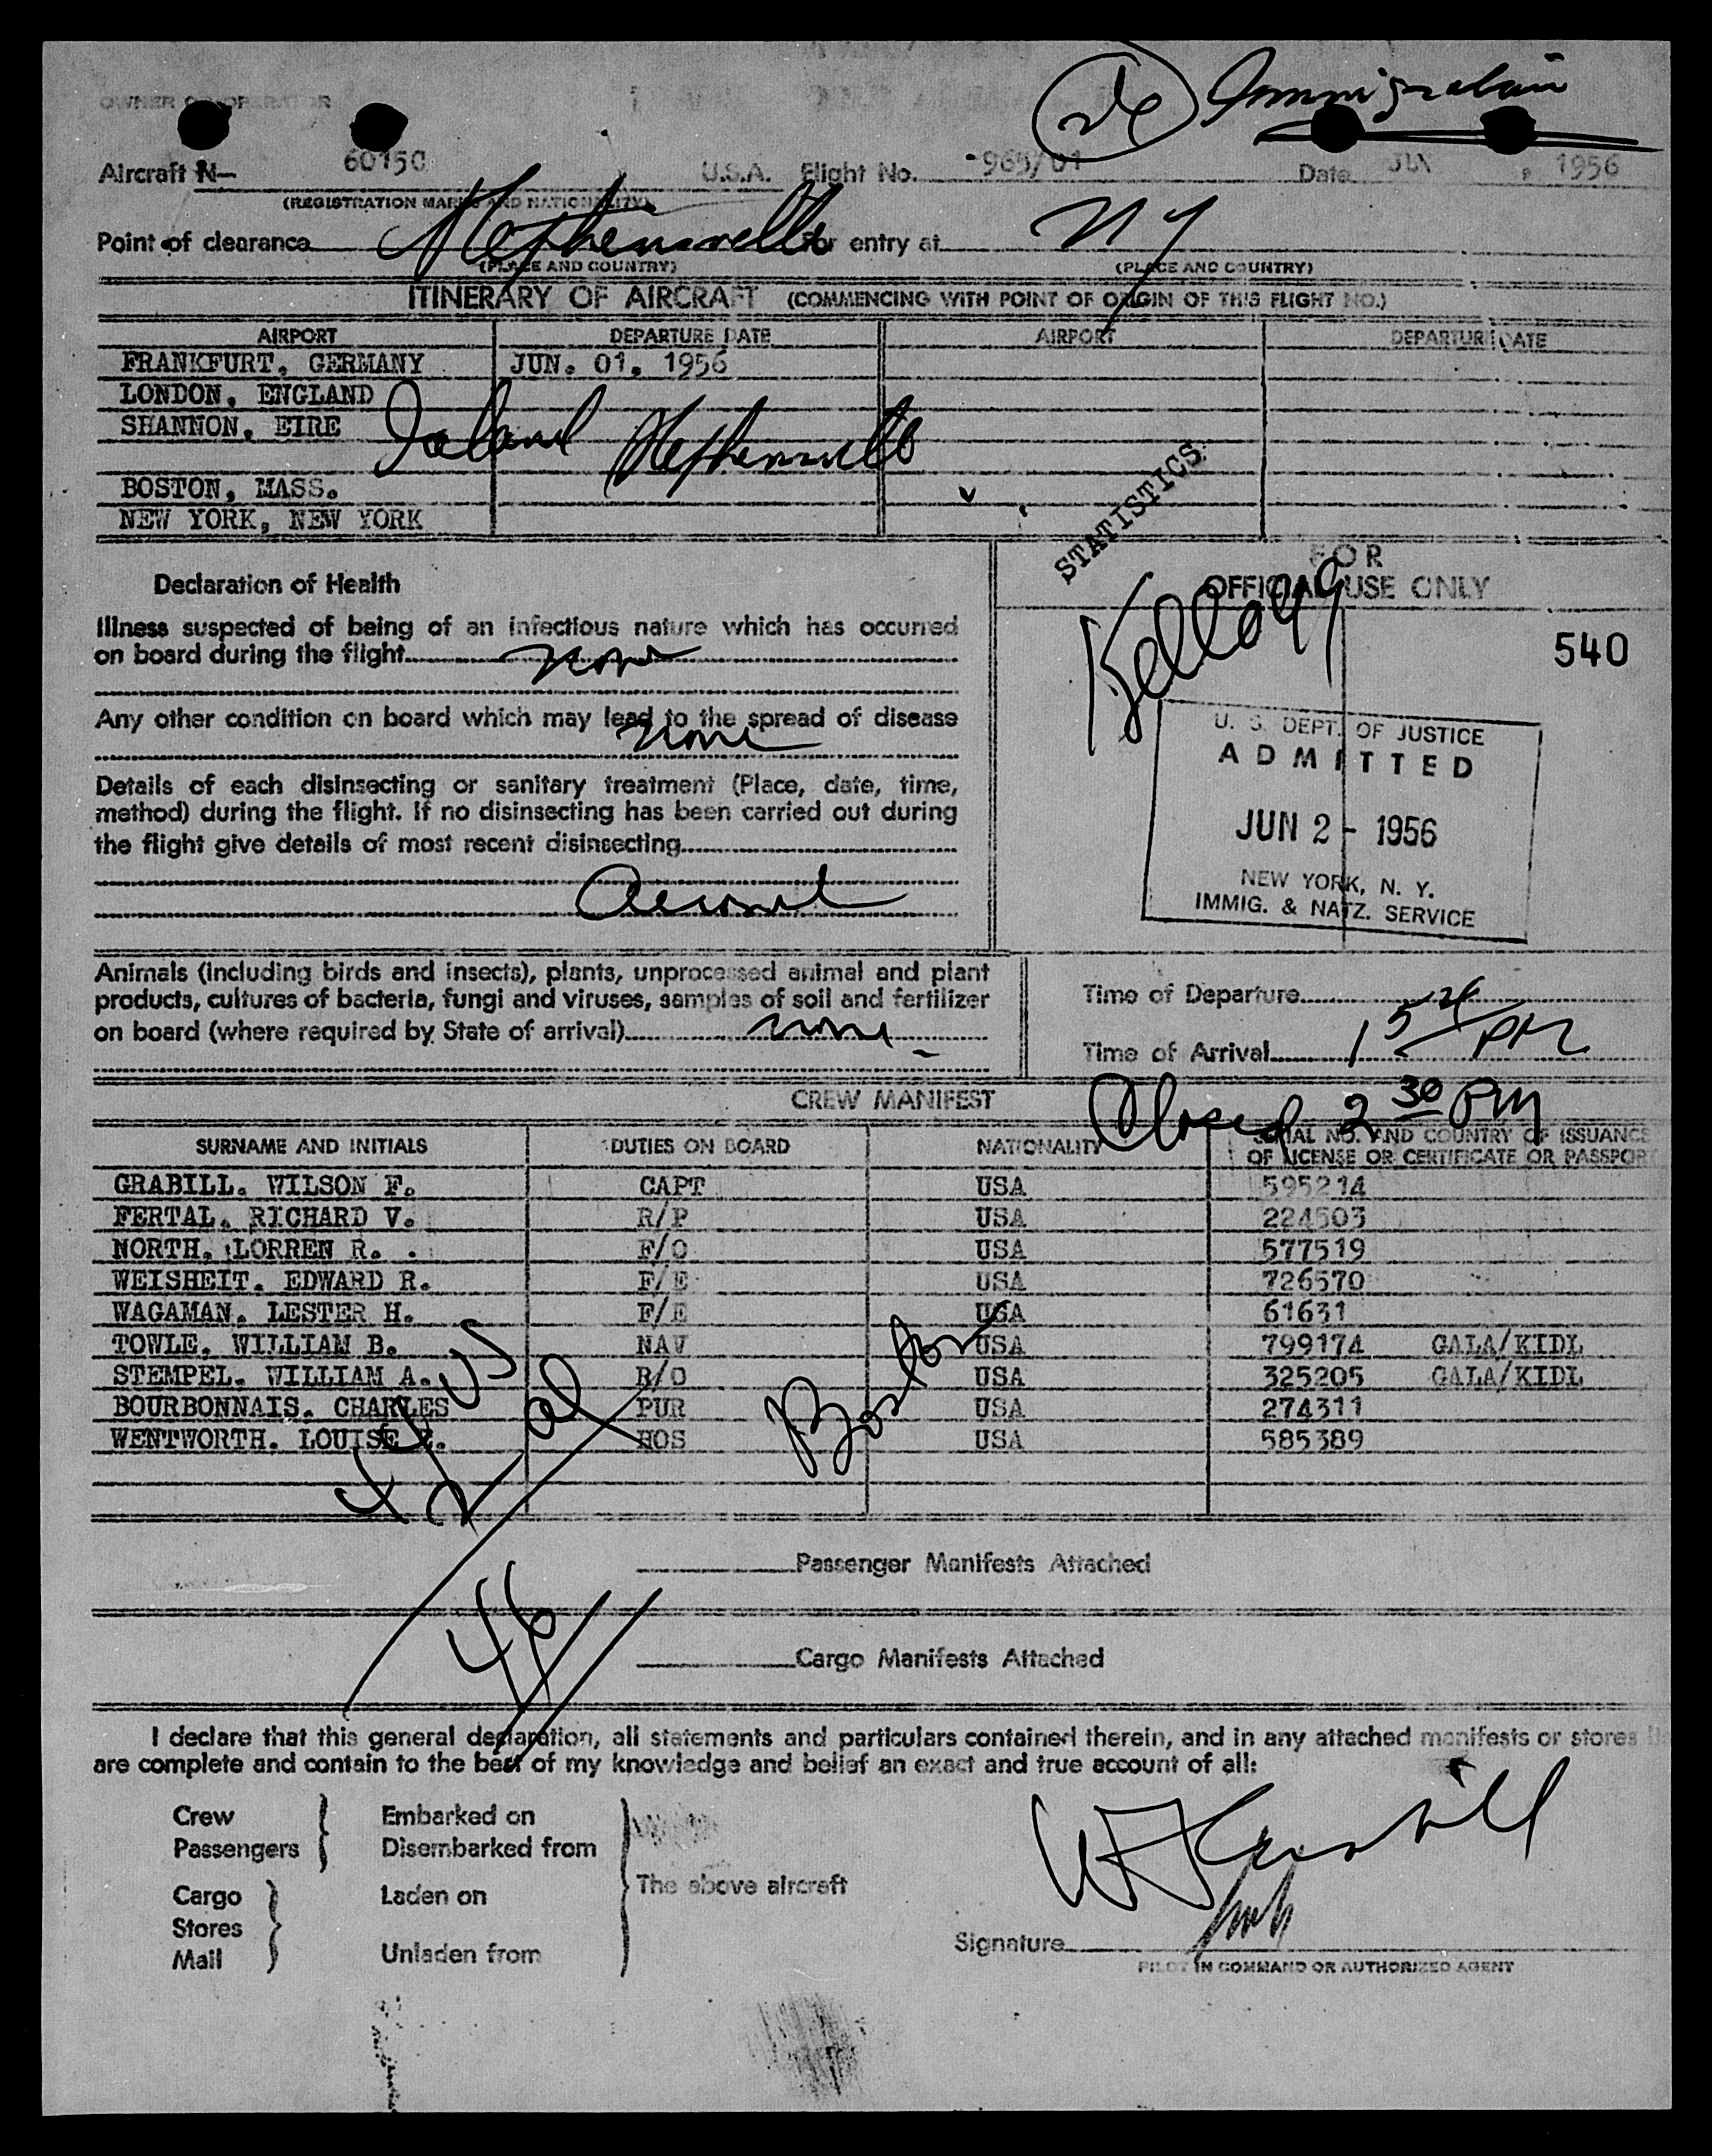 Immigration
OWNER OR OPERATOR
Aircraft N— 60150 U.S.A. Flight No. -965/01 Date JUN , 1956
(REGISTRATION MARKS AND NATIONALITY)
Point of clearance For entry at NY
(PLACE AND COUNTRY) (PLACE AND COUNTRY)
ITINERARY OF AIRCRAFT (COMMENCING WITH POINT OF ORIGIN OF THIS FLIGHT NO.)
AIRPORT DEPARTURE DATE AIRPORT DEPARTURE DATE
FRANKFURT, GERMANY JUN. 01, 1956
LONDON, ENGLAND
SHANNON, EIRE
BOSTON, MASS.
NEW YORK, NEW YORK
STATISTICS
Declaration of Health
Illness suspected of being of an infectious nature which has occurred
on board during the flight none
Any other condition on board which may lead to the spread of disease
none
Details of each disinsecting or sanitary treatment (Place, date, time,
method) during the flight. If no disinsecting has been carried out during
the flight give details of most recent disinsecting
FOR
OFFICIAL USE ONLY
Kellogg
540
U. S. DEPT. OF JUSTICE
ADMITTED
JUN 2 - 1956
NEW YORK, N. Y.
IMMIG. & NATZ. SERVICE
Animals (including birds and insects), plants, unprocessed animal and plant
products, cultures of bacteria, fungi and viruses, samples of soil and fertilizer
on board (where required by State of arrival) none
Time of Departure
Time of Arrival 1 54 PM
Closed 2 30 PM
CREW MANIFEST
SURNAME AND INITIALS DUTIES ON BOARD NATIONALITY SERIAL NO. AND COUNTRY OF ISSUANCE
OF LICENSE OR CERTIFICATE OR PASSPORT
GRABILL, WILSON F. CAPT USA 595214
FERTAL, RICHARD V. R/P USA 224503
NORTH, LORREN R. F/O USA 577519
WEISHEIT, EDWARD R. F/E USA 726570
WAGAMAN, LESTER H. F/E USA 61631
TOWLE, WILLIAM B. NAV USA 799174 GALA/KIDL
STEMPEL, WILLIAM A. R/O USA 325205 GALA/KIDL
BOURBONNAIS, CHARLES PUR USA 274311
WENTWORTH, LOUISE HOS USA 585389
44 US
2 al
Boston
46
Passenger Manifests Attached
Cargo Manifests Attached
I declare that this general declaration, all statements and particulars contained therein, and in any attached manifests or stores
are complete and contain to the best of my knowledge and belief an exact and true account of all:
Crew Embarked on
Passengers Disembarked from
The above aircraft
Cargo Laden on
Stores
Mail Unladen from
WF Grabill
Signature
PILOT IN COMMAND OR AUTHORIZED AGENT